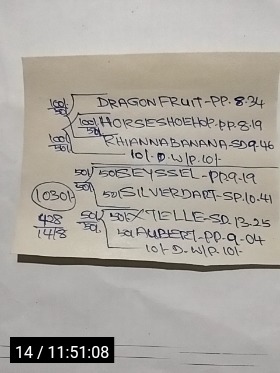 100/- 50/- DRAGON FRUIT-PP. 8.34
100/- 50/- HORSESHOEHOF-PP. 8.19
100/- 50/- RHIANNABANANA-SD 9.46
10/- D. W/P. 10/-
50/- 50/- SEYSSEL-PP. 9.19
50/- 50/- SILVERDART-SP. 10.41
1030/-
428
1418
50/- 50/- 50/- XTIELLE-SD. 13.25
50/- AUBERT-PP-9-04
10/- D-W/P. 10/-
14 / 11:51:08